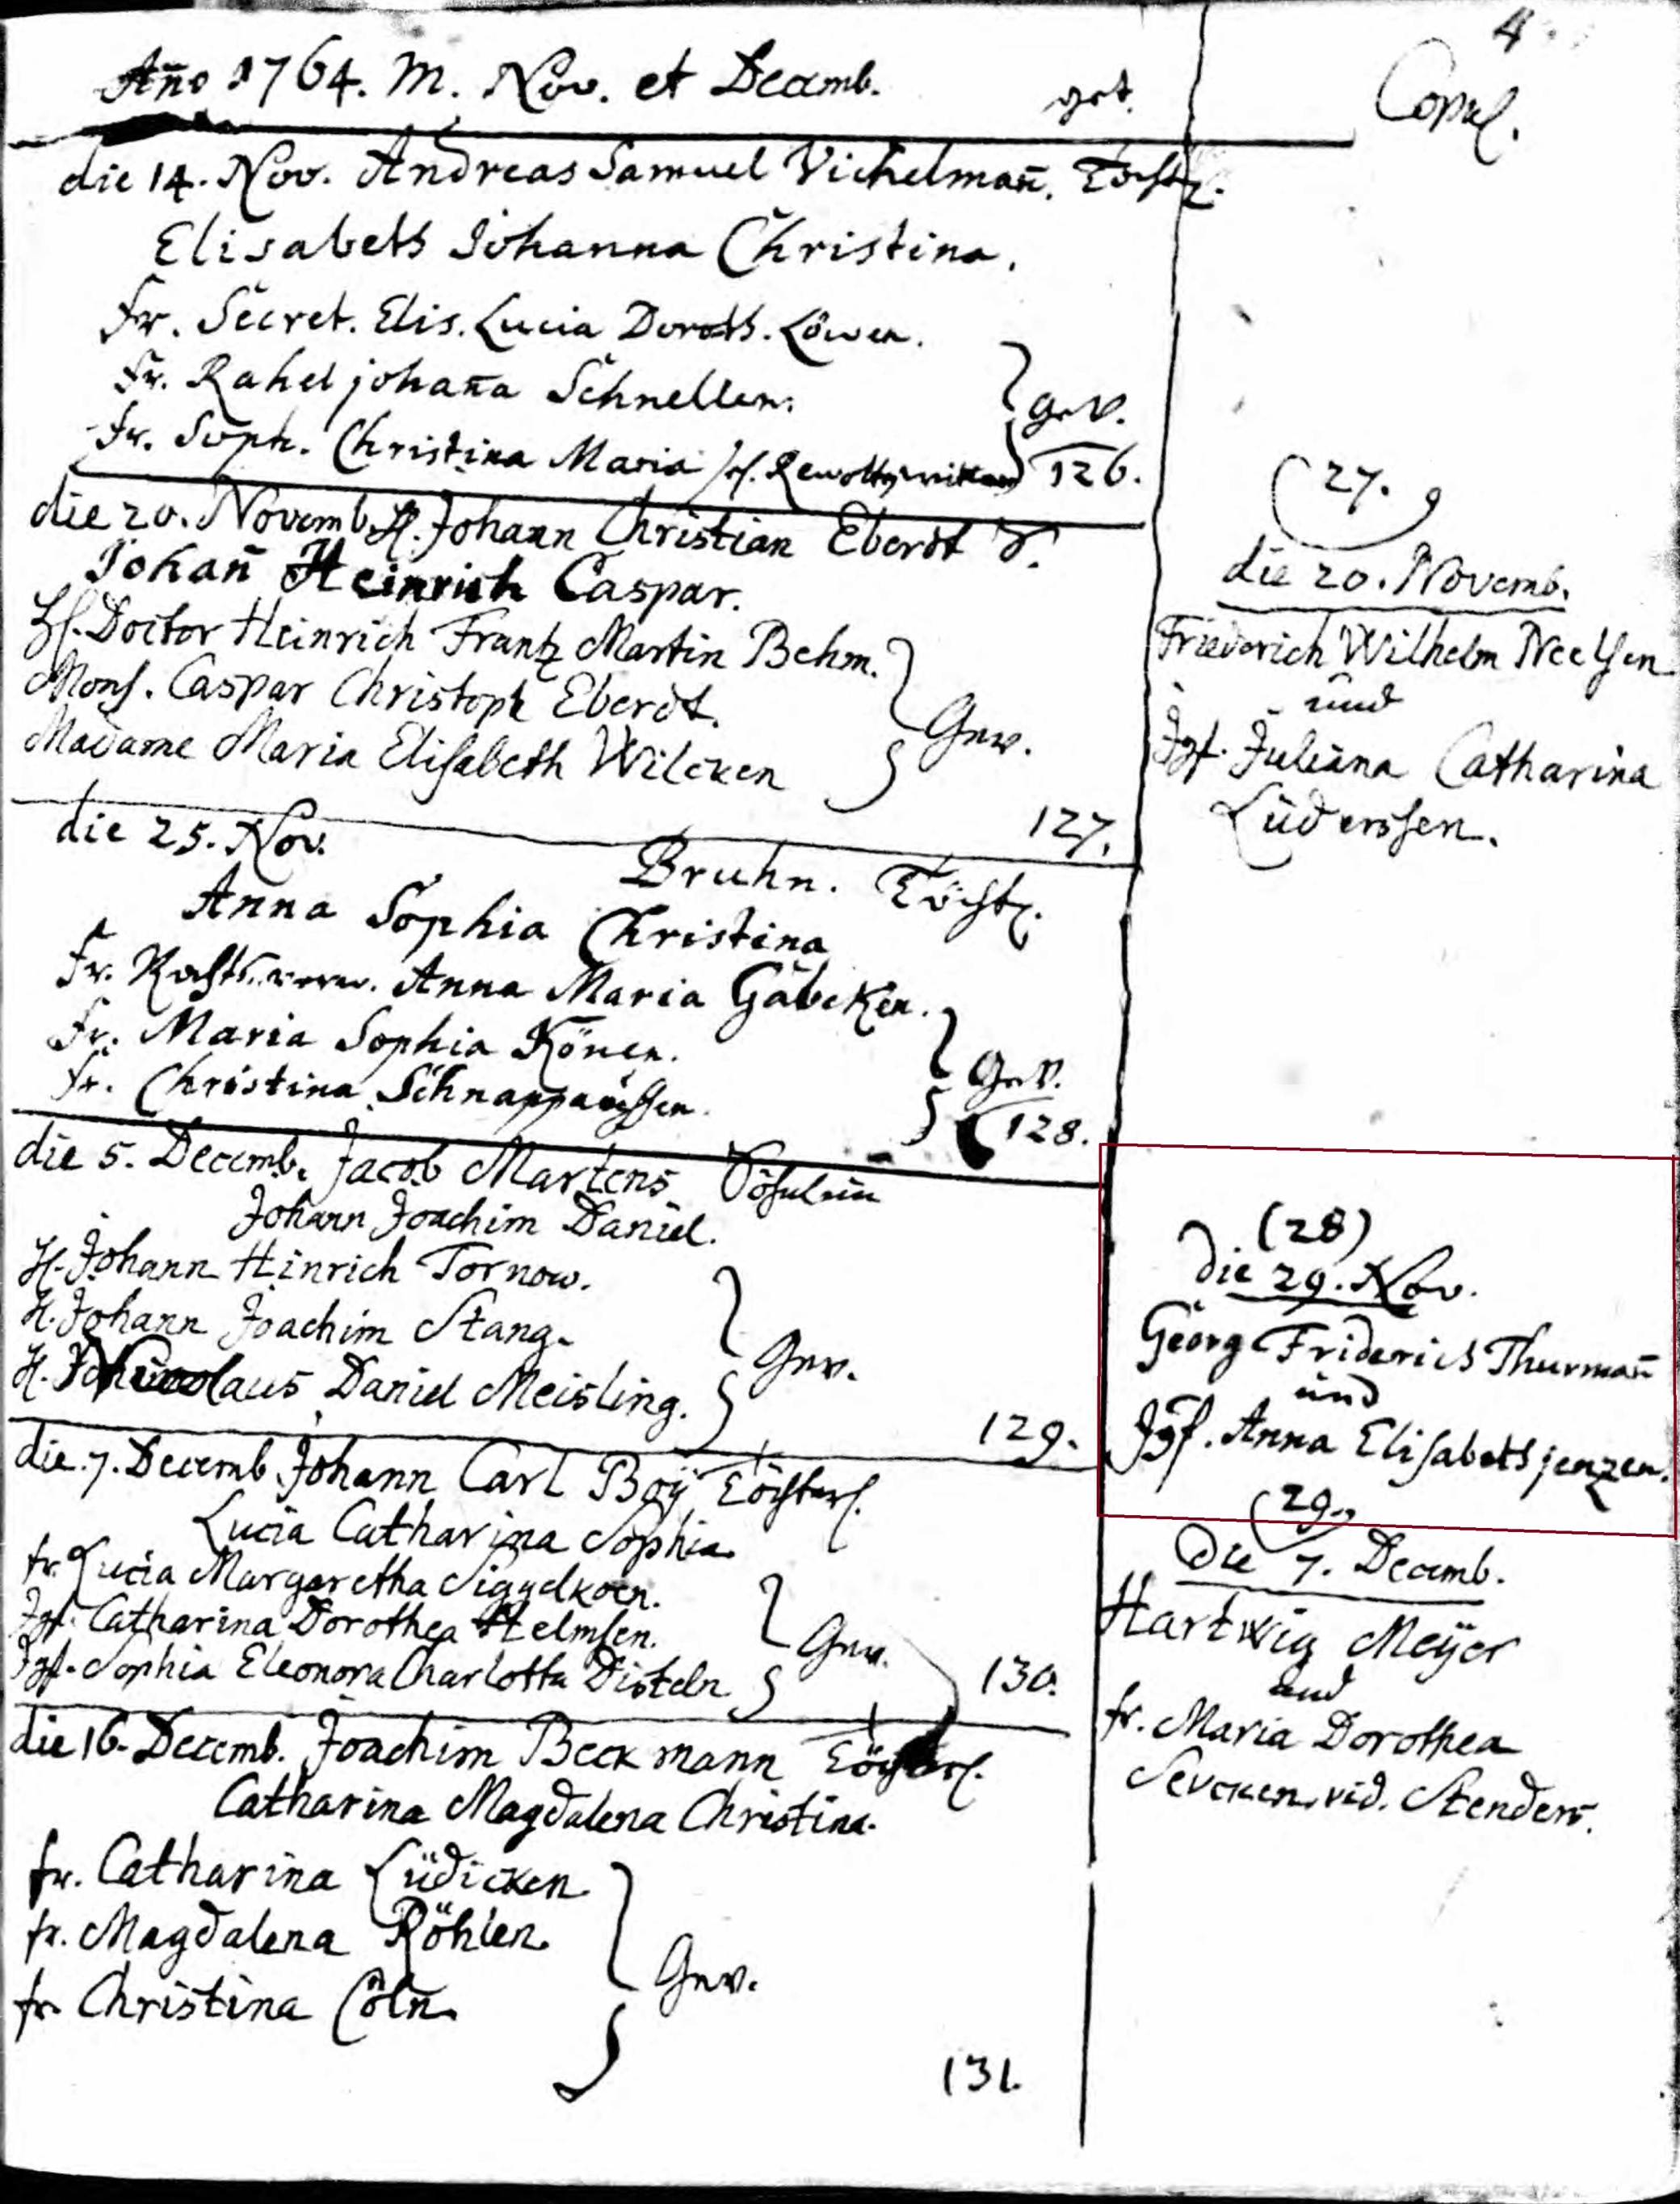 Año 1764. M. Nov. et Decemb.
get.
die 14. Nov. Andreas Samuel Vichelmañ. Töchtl.
Elisabeth Johanna Christina.
Fr. Secret. Elis. Lucia Doroth. Löwen.
Fr. Rahel johaña Schnellen.
Fr. Soph. Christina Maria
Gev.
126.
die 20. Novemb. H. Johann Christian Eberdt S.
Johañ Heinrich Caspar.
H. Doctor Heinrich Frantz Martin Behm.
Mons. Caspar Christoph Eberdt.
Madame Maria Elisabeth Wilcken
Gev.
127.
die 25. Nov. Bruhn. Töchtl.
Anna Sophia Christina
Fr. Anna Maria Gäbcken.
Fr. Maria Sophia Könen.
Fr. Christina
Gev.
128.
die 5. Decemb. Jacob Martens Söhnlein
Johann Joachim Daniel.
H. Johann Hinrich Tornow.
H. Johann Joachim Stang.
H. Nicolaus Daniel Meisling.
Gev.
129.
die 7. Decemb. Johann Carl Boÿ Töchterl.
Lucia Catharina Sophia.
Fr. Lucia Margaretha Siggelkoen.
Jgf. Catharina Dorothea Helmsen.
Jgf. Sophia Eleonora Charlotta Disteln
Gev.
130.
die 16. Decemb. Joachim Beckmann Töchterl.
Catharina Magdalena Christina.
fr. Catharina Lüdicken.
fr. Magdalena Röhlen.
fr. Christina Cöln.
Gev.
131.
4.
Copul.
27.
die 20. Novemb.
Friederich Wilhelm Neelsen
und
Jgf. Juliana Catharina
Lüderssen.
(28)
die 29. Nov.
Georg Friderich Thurmañ
und
Jgf. Anna Elisabeth jenzen.
(29.)
Die 7. Decemb.
Hartwig Meÿer
und
fr. Maria Dorothea
Sevcken. vid. Stenders.